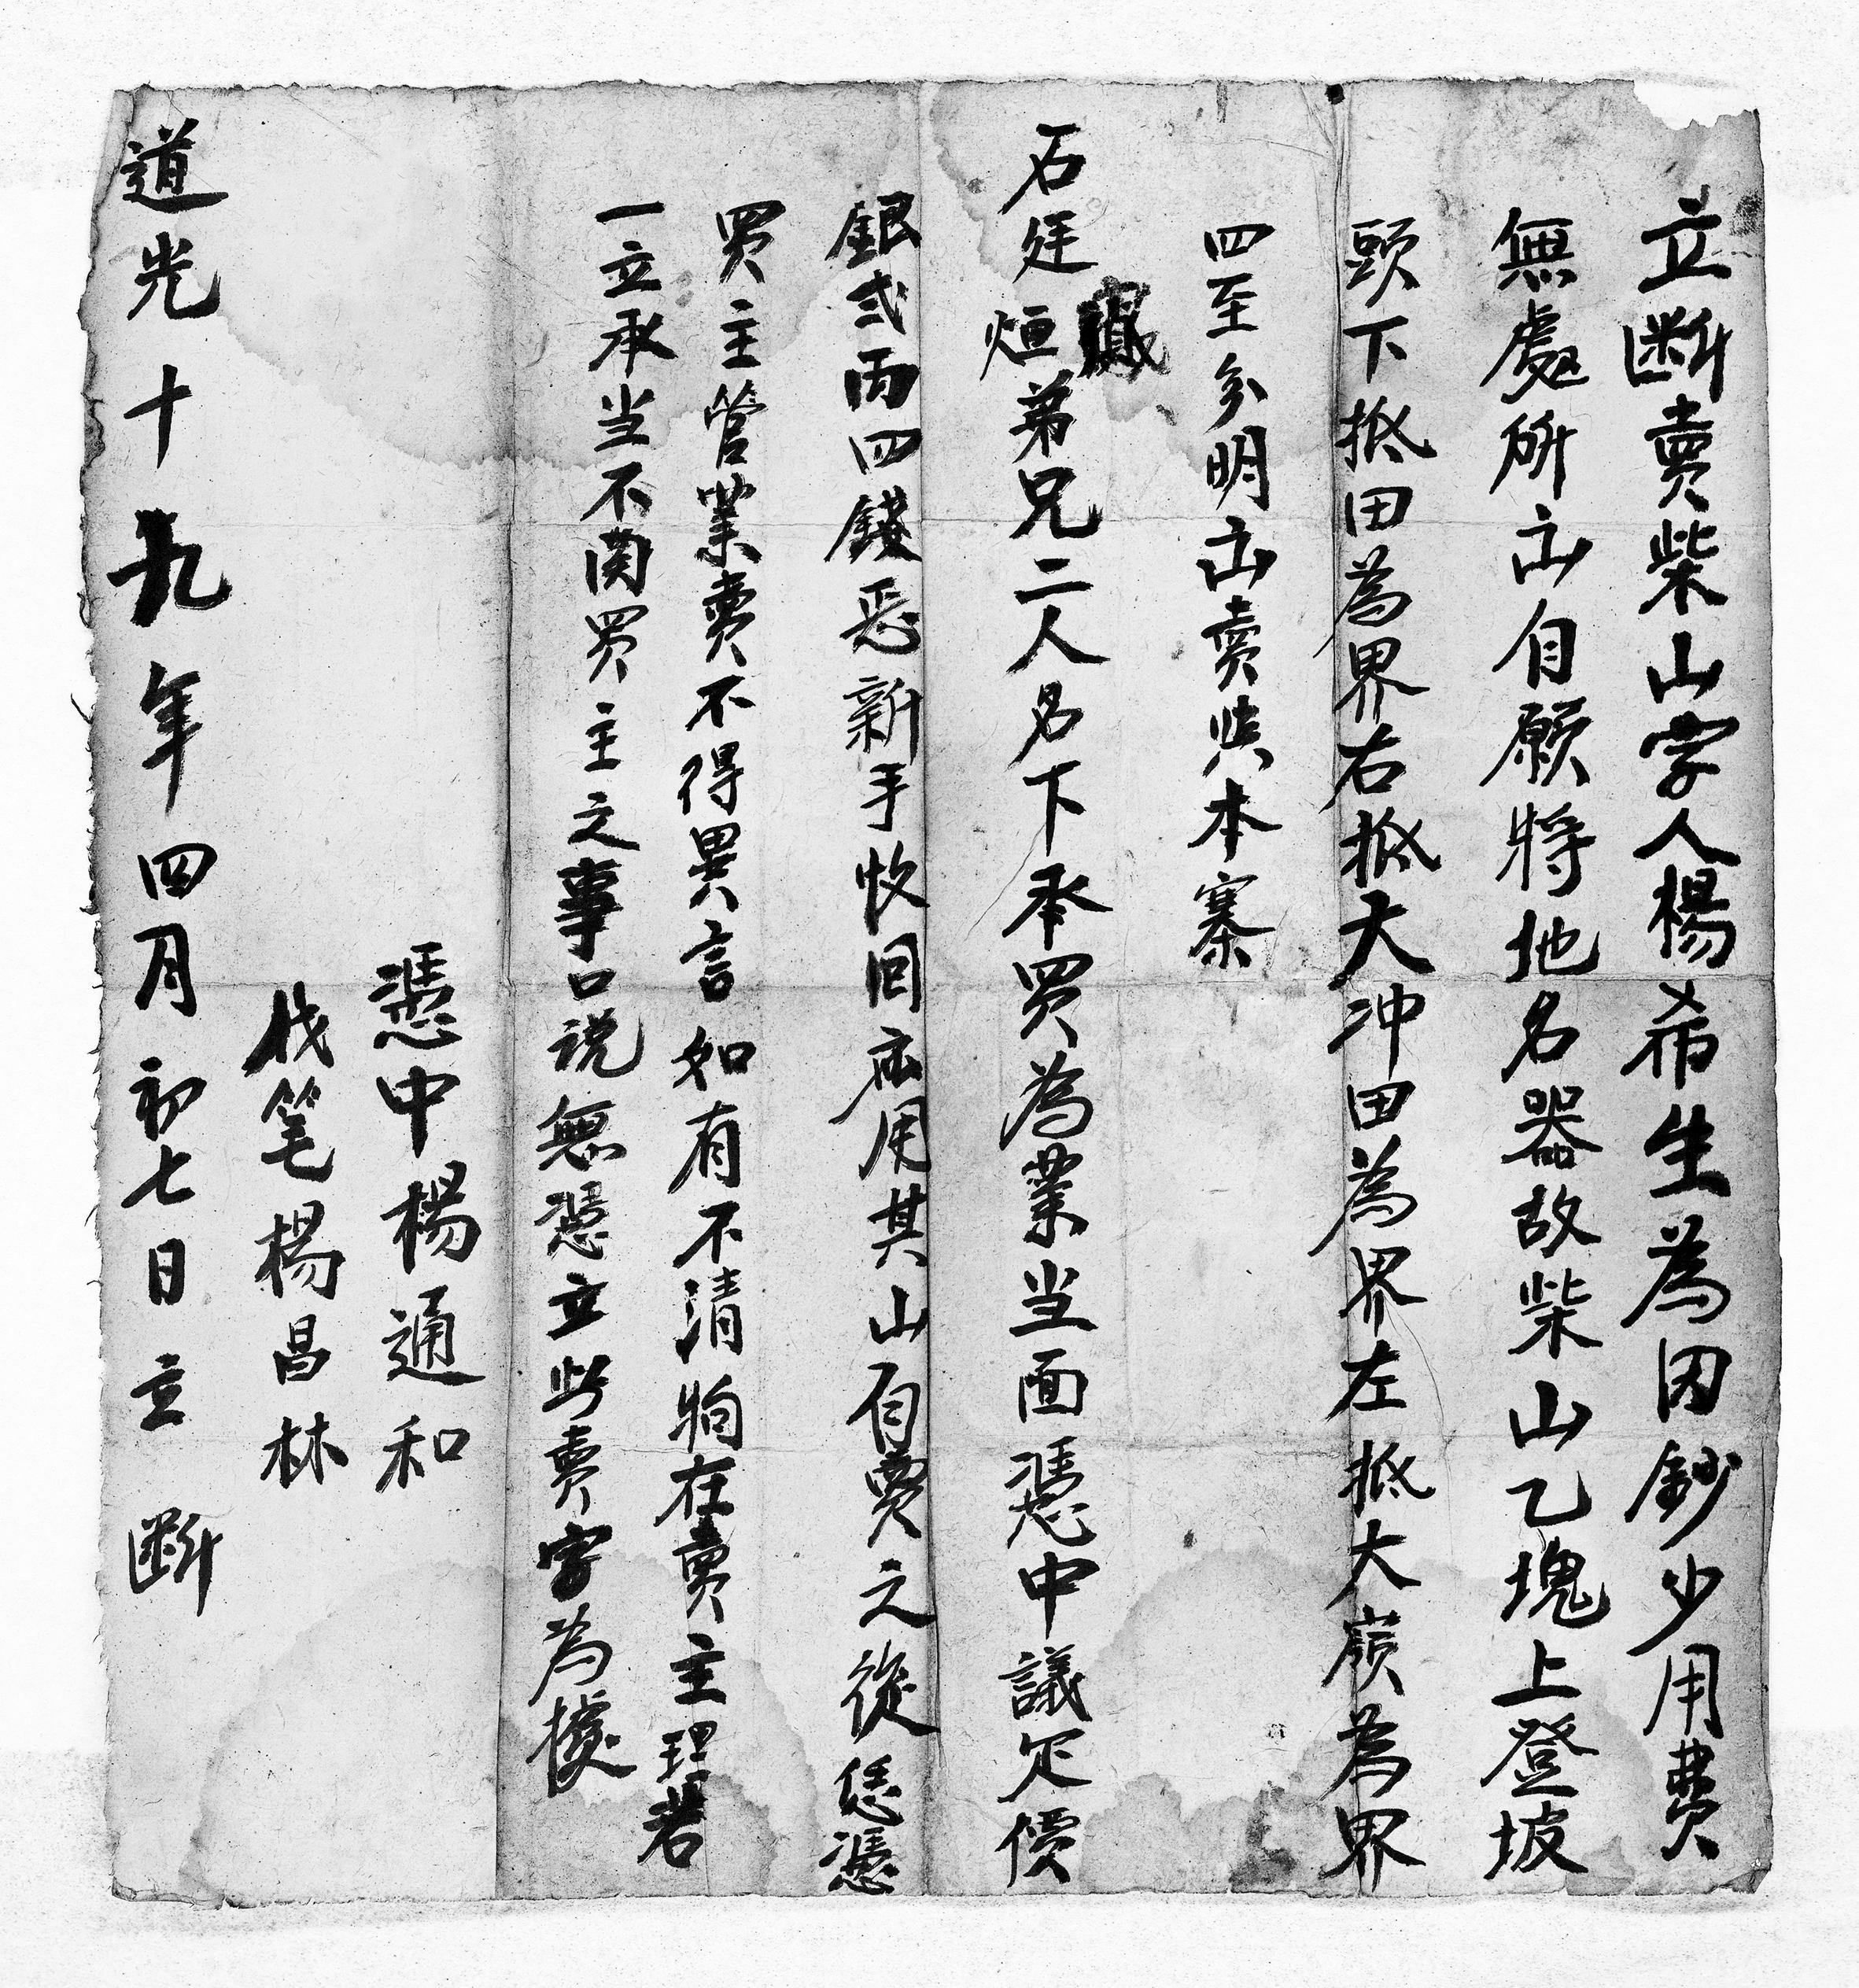 立断賣柴山字人楊希生為因鈔少用費
無處所山自願將地名器故柴山乙塊上登坡
頭下抵田為界右抵大冲田為界左抵大嶺為界
四至分明山賣與本寨
石廷烜弟兄二人名下承買為業当面憑中議定價
銀弍両四錢新手收回應用其山自賣之從恁憑
買主管業賣不得異言如有不清向在賣主理若
一立承当不関買主之事口説無憑立此賣字為據
憑中楊通和
代笔楊昌林
道光十九年四月初七日立断